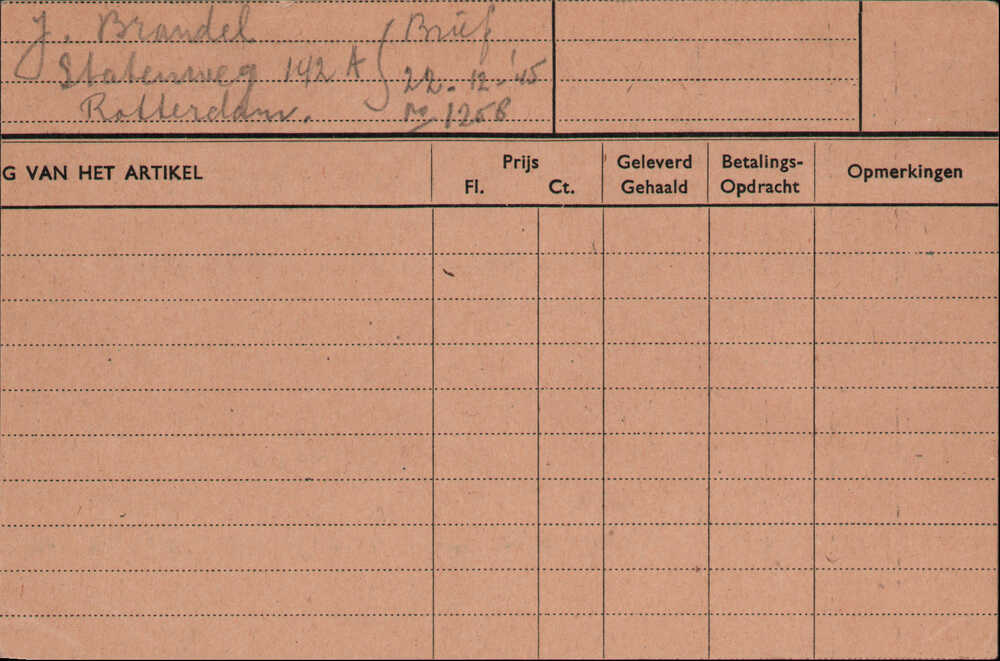 J. Brandel
Statenweg 142 A
Rotterdam.
Brief
22-12-'45
no 1258
G VAN HET ARTIKEL
Prijs
Fl. Ct.
Geleverd
Gehaald
Betalings-
Opdracht
Opmerkingen